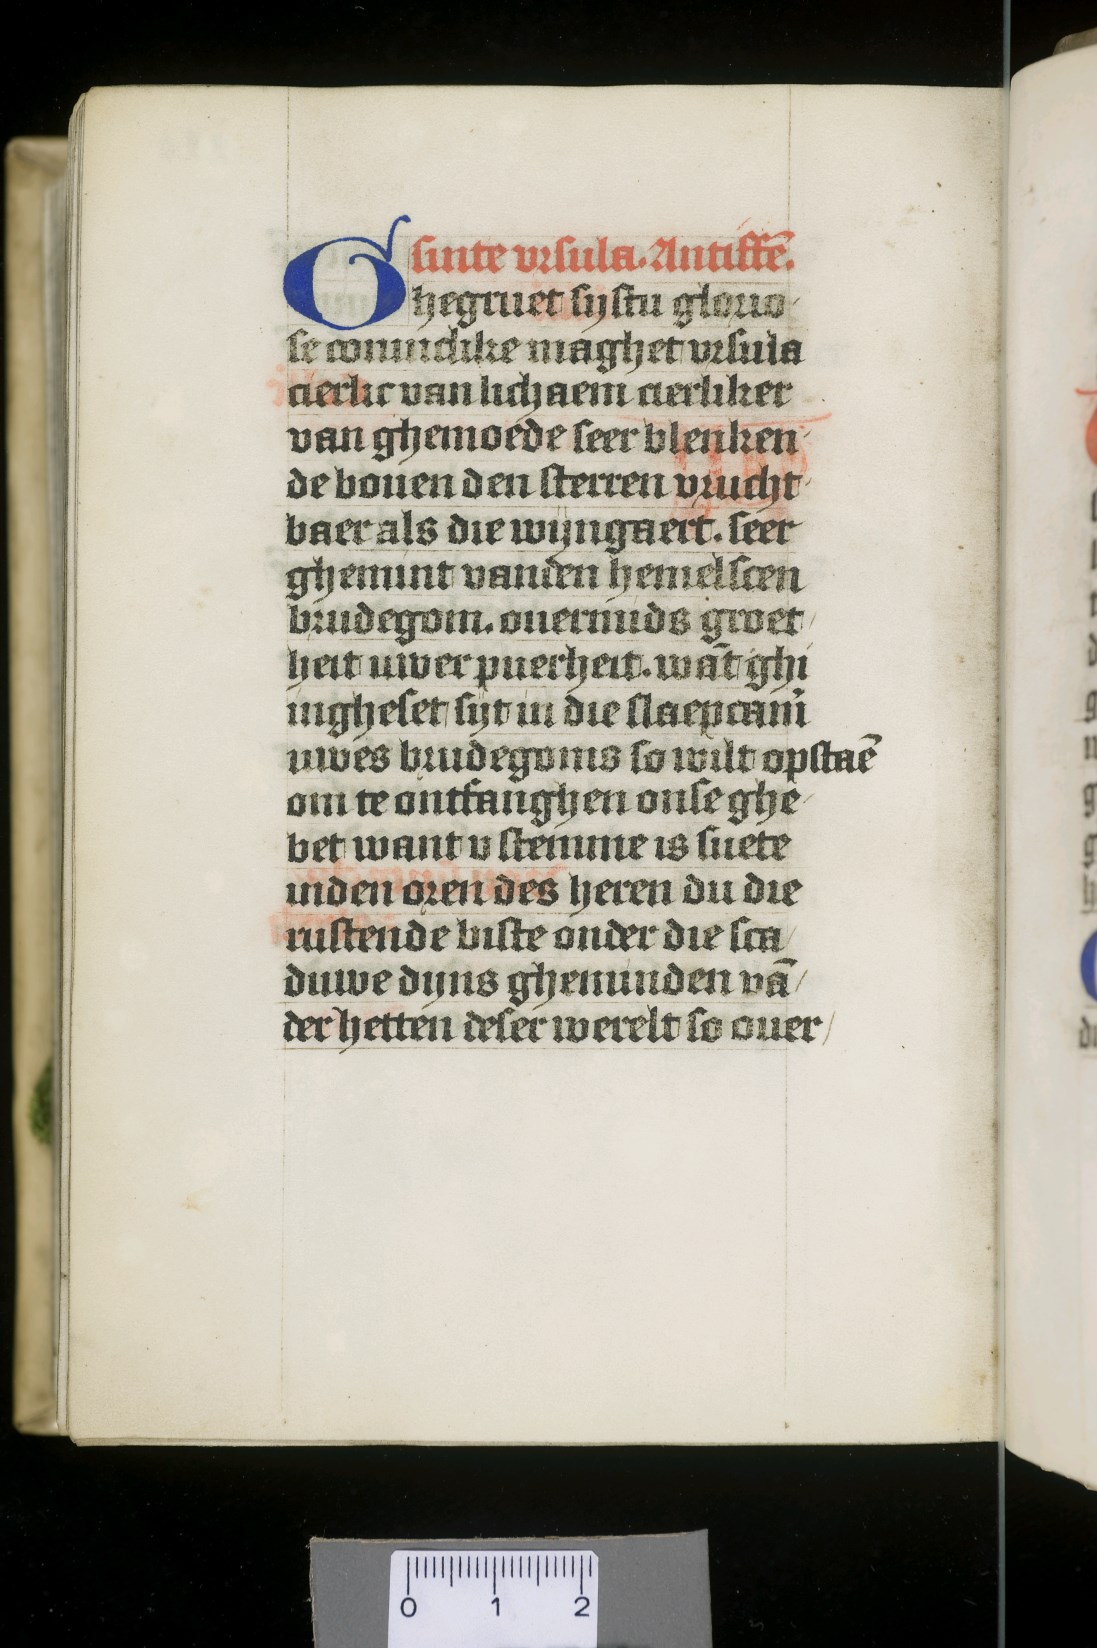 sinte vrsula. Antiffē.
Ghegruet sijstu glorio
se coninclike maghet vrsula
cierlic van lichaem cierliker
van ghemoede seer blenken
de bouen den sterren vrucht
baer als die wijngaert. seer
ghemint vanden hemelscen
brudegom. ouermids groet
heit uwer puerheit. wāt ghi
ingheset sijt in die slaepcam̄
uwes brudegoms so wilt opstaē
om te ontfanghen onse ghe
bet want v stemme is suete
inden oren des heren du die
rustende biste onder die sca
duwe dijns gheminden vā
der hetten deser werelt so ouer